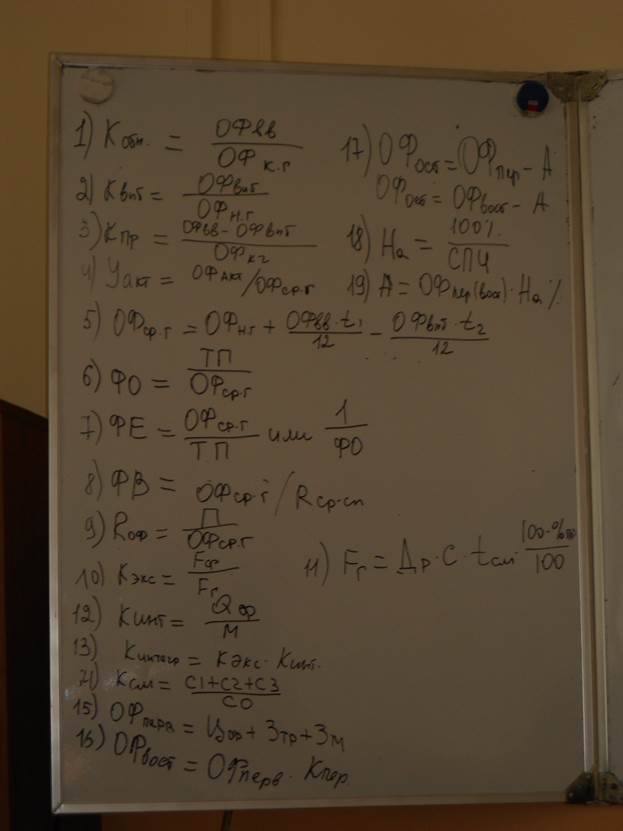 1) Kобн. = ОФвв / ОФк.г
2) Kвыб = ОФвыб / ОФн.г
3) Kпр = ОФвв - ОФвыб / ОФкг
4) Уакт = ОФакт / ОФср.г
5) ОФср.г = ОФнг + ОФвв·t1 / 12 - ОФвыб·t2 / 12
6) ФО = ТП / ОФср.г
7) ФЕ = ОФср.г / ТП или 1 / ФО
8) ФВ = ОФср.г / Rср-сп
9) Rоф = П / ОФср.г
10) Kэкс = Fф / Fг
11) Fг = Др·С·tсм· 100-% / 100
12) Kинт = Q / М
13) Kинтегр = Kэкс·Kинт.
Kсм = С1+С2+С3 / СО
15) ОФперв = Цоб + Зтр + Зм
16) ОФвост = ОФперв · Kпер
17) ОФост = ОФпер - А
ОФост = ОФвост - А
18) На = 100% / СПИ
19) А = ОФпер(вост)·На%